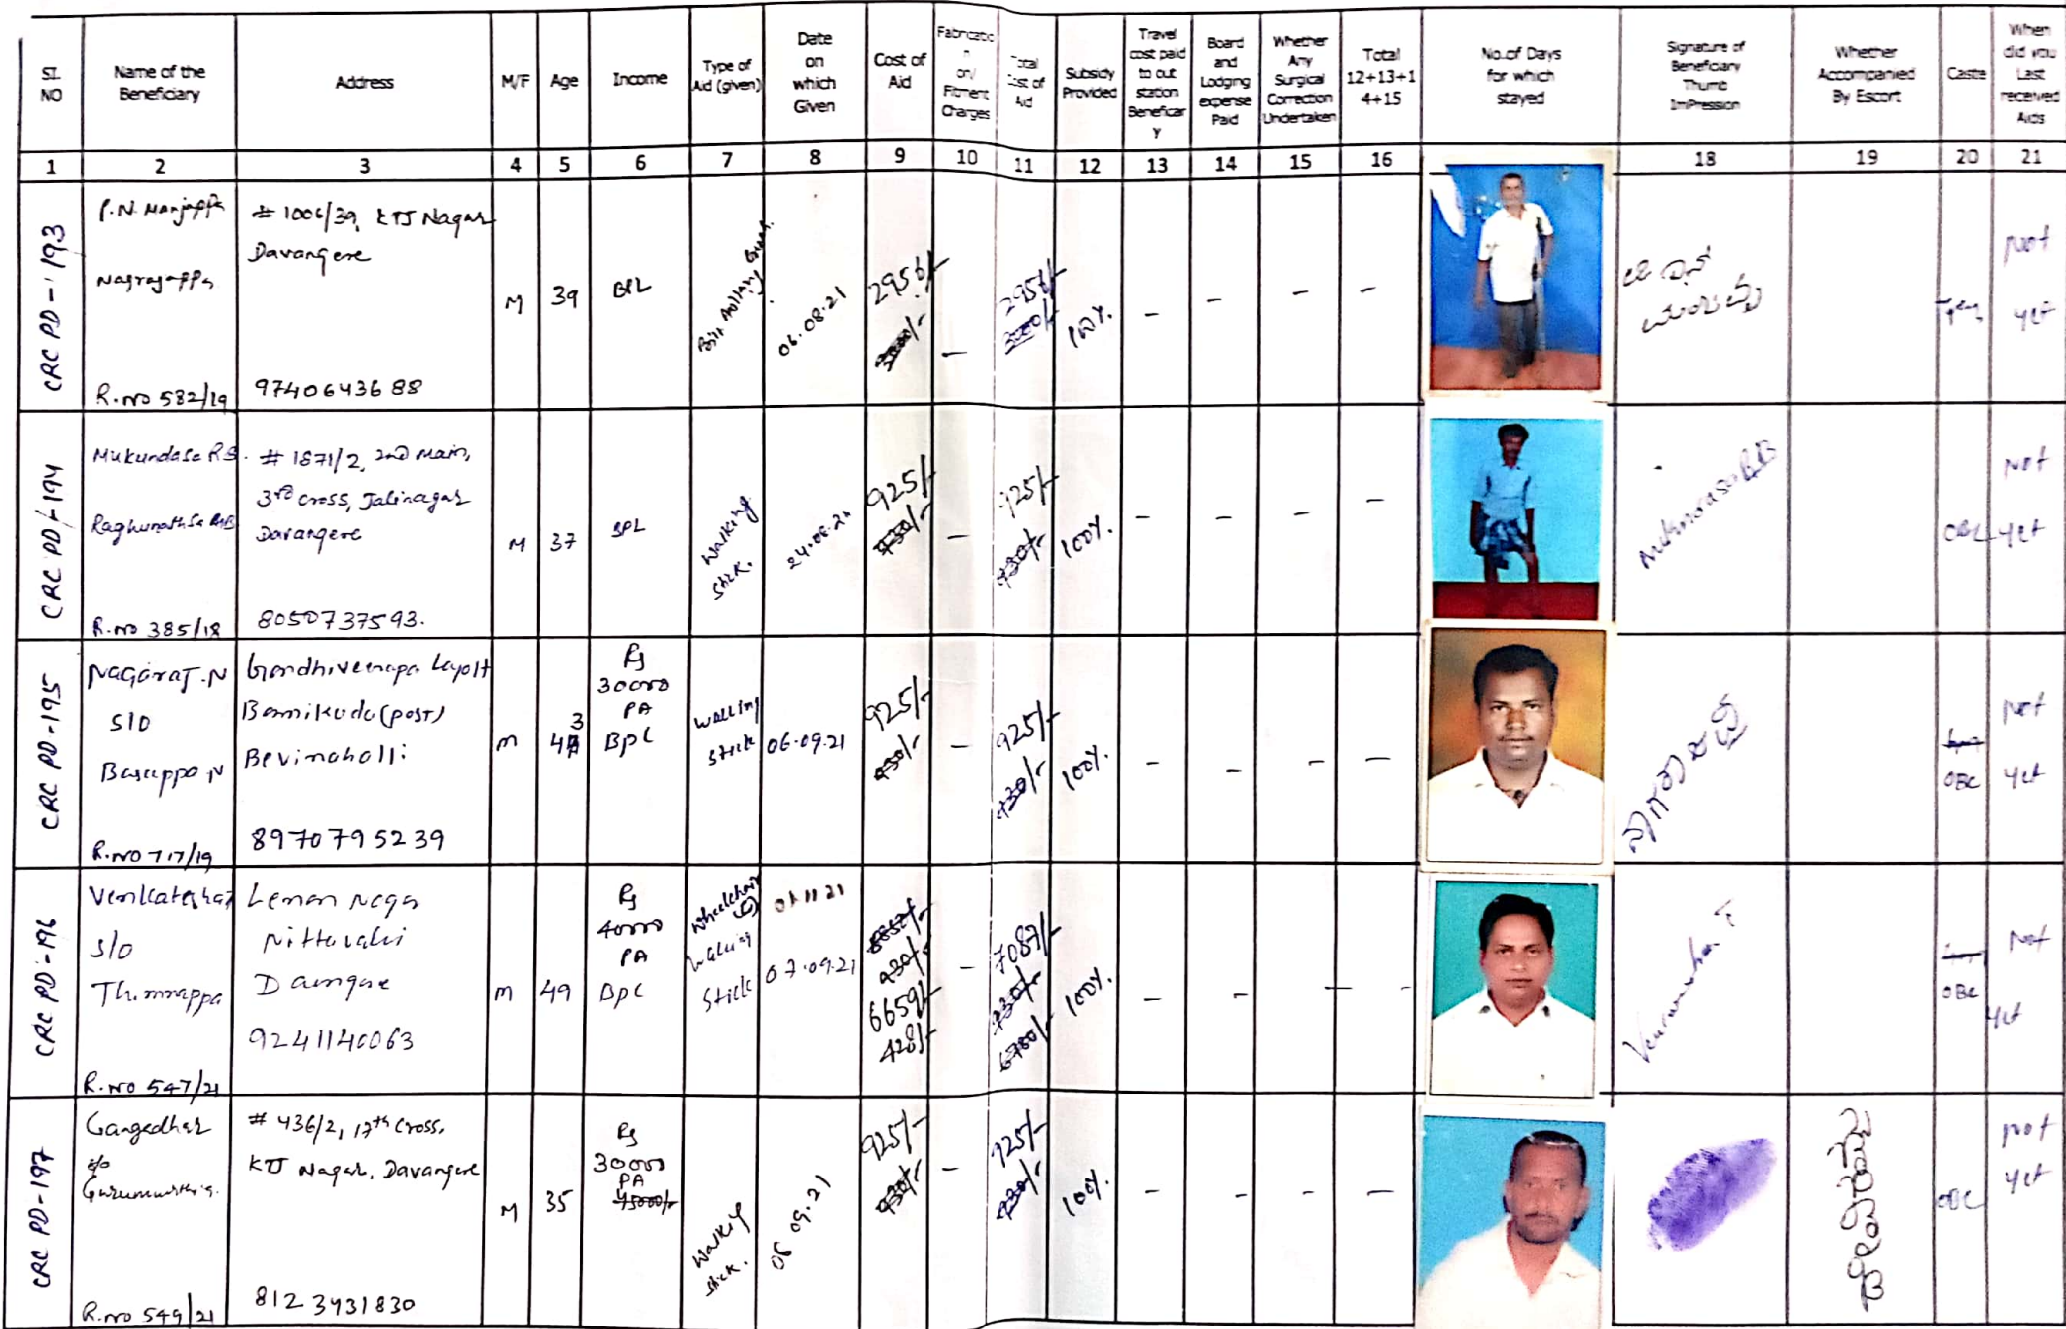 SL NO
Name of the Beneficiary
Address
M/F
Age
Income
Type of Aid (given)
Date on which Given
Cost of Aid
Fabricatio n on/ Fitment Charges
Total Cost of Aid
Subsidy Provided
Travel cost paid to out station Beneficar y
Board and Lodging expense Paid
Whether Any Surgical Correction Undertaken
Total 12+13+1 4+15
No.of Days for which stayed
Signature of Beneficiary Thumb ImPression
Whether Accompanied By Escort
Caste
When did you Last received Aids
1 2 3 4 5 6 7 8 9 10 11 12 13 14 15 16 18 19 20 21
CRC PD-193
P.N. Manjappa
Nagrajappa
R.no 582/19
# 1006/39, KTJ Nagar
Davangere
9740643688
M
39
BPL
06.08.21
2956/-
3000/-
–
2956/-
3000/-
100%
– – – –
Not
yet
CRC PD-194
Mukundasa RB.
Raghunathsa RB
R.no 385/18
# 1871/2, 2nd main,
3rd cross, Jalinagar
Davangere
8050737593.
M
37
BPL
Walking
Stick.
24.08.21
925/-
930/-
–
925/-
930/-
100%
– – – –
OBC
Not
yet
CRC PD-195
Nagaraj.N
S/O
Basappa N
R.no 717/19
Layolt
(post)
Bevinahalli
8970795239
m
43
Rs
30000
PA
BPL
Walking
Stick
06.09.21
925/-
930/-
–
925/-
930/-
100%
– – – –
ನಾಗರಾಜ
OBC
Not
yet
CRC PD-196
S/O
Thimmappa
R.no 547/21
Lenan Naga
Nittuvalli
9241140063
m
49
Rs
40000
PA
BPL
Wheelchair
Walking
Stick
01.11.21
07.09.21
930/-
6659/-
428/-
–
7087/-
930/-
6780/-
100%
– – – –
OBC
Not
yet
CRC PD-197
Gangadhar
S/o
R.no 549/21
# 436/2, 17th Cross,
KTJ Nagar, Davangere
8123931830
M
35
Rs
30000
PA
45000/-
Walking
Stick.
08 09.21
925/-
930/-
–
925/-
930/-
100%
– – – –
OBC
Not
yet